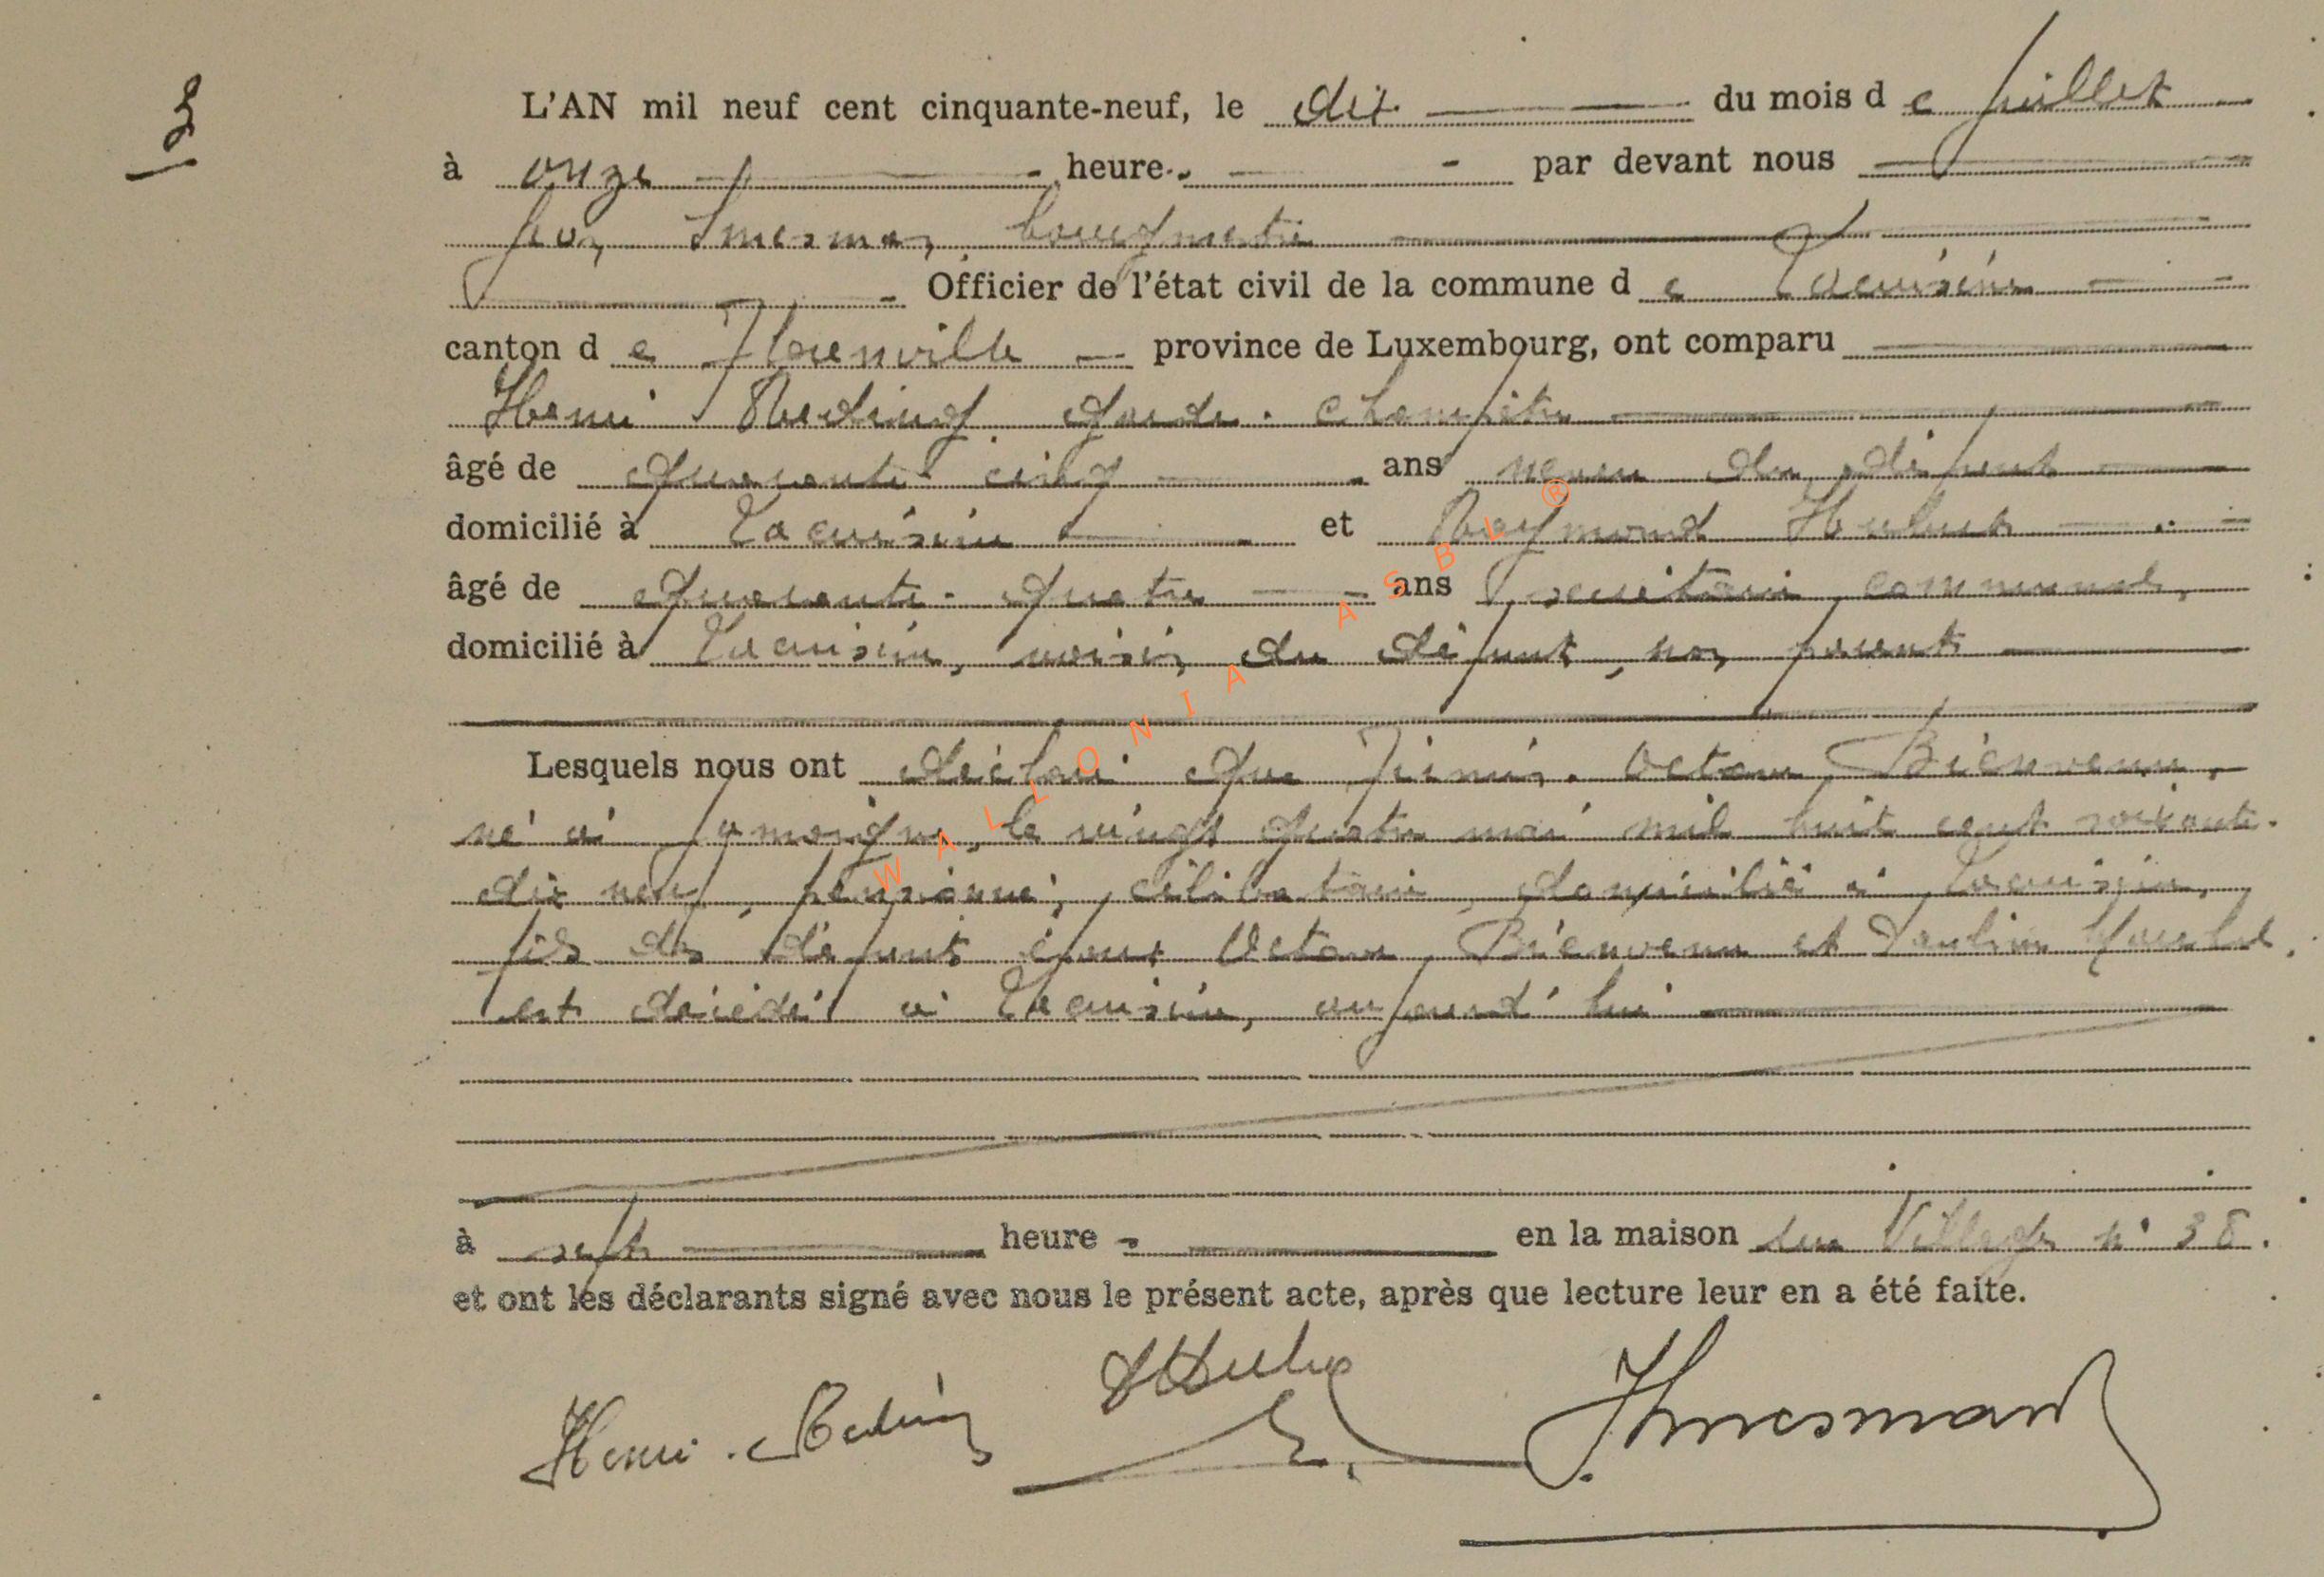 3
L'AN mil neuf cent cinquante-neuf, le dix du mois d e juillet
à onze heure par devant nous
bourgmestre
Officier de l'état civil de la commune d e Lacuisine
canton d e Florenville province de Luxembourg, ont comparu
Henri Reding garde-champêtre
âgé de quarante-cinq ans neveu du défunt
domicilié à Lacuisine et Raymond
âgé de quarante-quatre ans secrétaire communal,
domicilié à Lacuisine, voisin du défunt, non parent
Lesquels nous ont déclaré que Firmin-Octave Bienvenu,
né à Jamoigne, le vingt quatre mai mil huit cent soixante-
dix neuf, pensionné, célibataire, domicilié à Lacuisine,
fils des défunts époux Octave Bienvenu et
est décédé à Lacuisine, aujourd'hui
à sept heure en la maison Village n° 38.
et ont les déclarants signé avec nous le présent acte, après que lecture leur en a été faite.
Henri Reding
WALLONIA ASBL ®